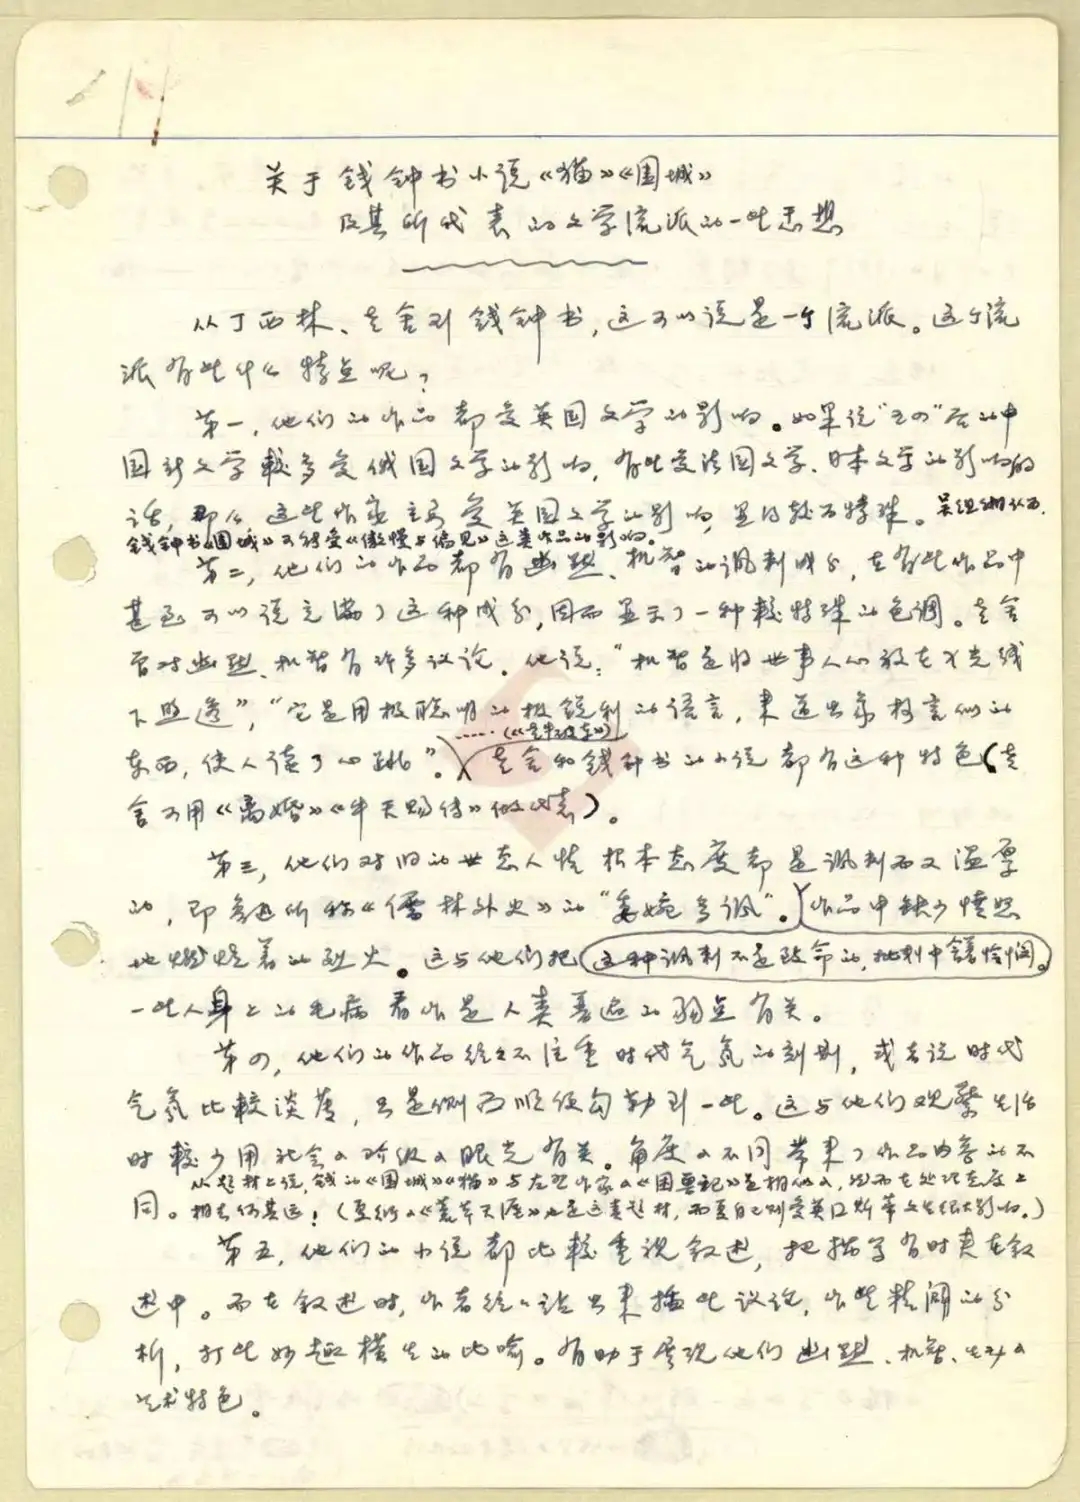 关于钱钟书小说《猫》《围城》
及其所代表的文学流派的一些思想
从丁西林、老舍到钱钟书，这可以说是一个流派。这个流
派有些什么特点呢？
第一，他们的作品都受英国文学的影响。如果说"五四"后的中
国新文学较多受俄国文学的影响，有些受法国文学、日本文学的影响的
话，那么，这些作家主要受英国文学的影响，显得较为特殊。吴组缃认为，
钱钟书《围城》可能受《傲慢与偏见》这类作品的影响。
第二，他们的作品都有幽默、机智的讽刺成分，在有些作品中
甚至可以说充满了这种成分，因而显示了一种较特殊的色调。老舍
曾对幽默、机智有许多议论。他说："机智是将世事人心放在X光线
下照透"，"它是用极聪明的极锐利的语言，来道出像格言似的
东西，使人读了心跳"。（《老牛破车》）老舍和钱钟书的小说都有这种特色（老
舍可用《离婚》《牛天赐传》做代表）。
第三，他们对旧的世态人情根本态度都是讽刺而又温厚
的，即鲁迅所称《儒林外史》的"婉多讽"。作品中缺少愤怒
地燃烧着的烈火。这与他们把
这种讽刺不是致命的，批判中含着怜悯。
一些人身上的毛病看作是人类普遍的弱点有关。
第四，他们的作品往往不注重时代气氛的刻划，或者说时代
气氛比较淡薄，只是侧面顺便勾勒到一些。这与他们观察生活
时较少用社会的阶级的眼光有关。角度的不同带来了作品内容的不
从题材上说，钱的《围城》《猫》与左翼作家的《围》是相似的，然而在处理态度上
同。相去何其远！（夏衍的《芳草天涯》也是这类题材，而夏自己则受英文学很大影响。）
第五，他们的小说都比较重视叙述，把描写有时夹在叙
述中。而在叙述时，作者往往站出来插些议论，作些精闢的分
析，打些妙趣横生的比喻。有助于展现他们幽默、机智、生动的
艺术特色。